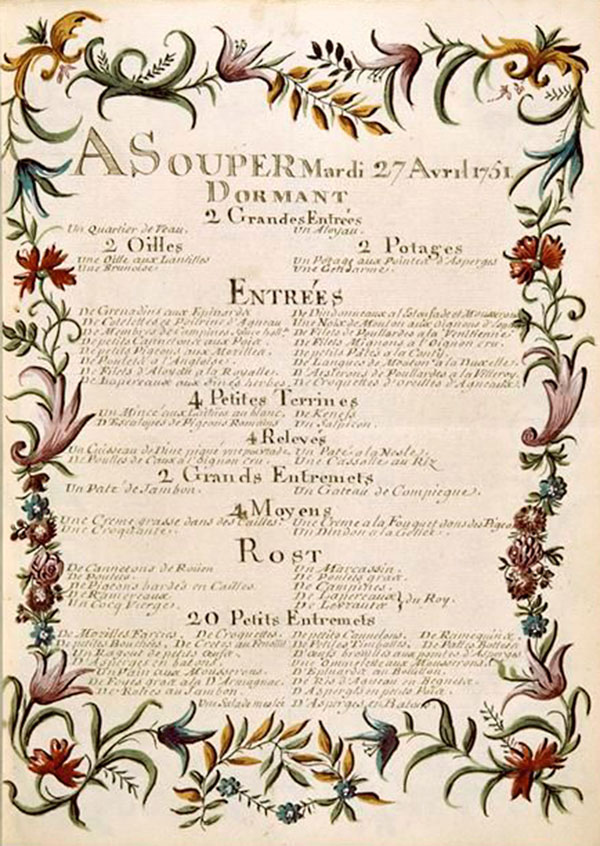 A SOUPER Mardi 27 Avril 1751
DORMANT
2 Grandes Entrées
Un Quartier de Veau. Un Aloyau.
2 Oilles 2 Potages
Une Oille aux Lantilles Un Potage aux Pointes d'Asperges
Une Brunoise. Une Gendarme.
ENTRÉES
De Grenadins aux Epinards De Dindonneaux a
De Cotelettes et Poitrine d'Agneau Une Noix de Mouton aux oignons
De Membres de Campines De Filets de Poullardes a la Venitienne
De petits Cannetons aux Poix De Filets Mignons a l'Oignon cru.
De petits Pigeons aux Morilles De petits Pâtés a la Conty.
De Poulets a l'Angloise. De Langues de Mouton a la Duxelles.
De Filets d'Aloyau a la Royalle. D'Aislerons de Poullardes a la Villeroy.
De Lapereaux aux fines herbes De Croquettes d'oreilles d'Agneaux
4 Petites Terrines
Un Mince aux Laitües au blanc. De Kenefs
D'Escalopes de Pigeons Romains Un Salpicon.
4 Relevés
Un Cuisseau de Dine piqué Un Paté a la Nesle.
De Poulles de Caux a l'oignon cru. Une Cassolle au Riz
2 Grands Entremets
Un Paté de Jambon. Un Gateau de Compiegne.
4 Moyens
Une Creme grasse dans des Cailles. Une Creme a la Fouquet dans des Pigeo
Une Croquante. Un Dindon a la Gelée.
ROST
De Cannetons de Roüen Un Marcassin.
De Poulets. De Poulets gras.
De Pigeons bardés en Cailles. De Campines.
De Ramereaux. De Lapereaux du Roy.
Un Cocq Vierge. De Levrauts
20 Petits Entremets
De Morilles Farcies. De Croquettes. De petits Cannelons. De Ramequins
De petites Bouchées. De Cretes au De Petites Timballes. De Pattes
Un Ragout de petits œufs. D'Œufs brouillés aux pointes d'Asperges
D'Asperges en batons. Une Ommelette aux Mousserons.
Un Pain aux Mousserons. D'Epinards au Boüillon.
De Foyes gras a la D'Armagnac. De Ris d'Agneau en
De Roties au Jambon. D'Asperges en petits Poix
Un Salade meslée D'Asperges en Batons